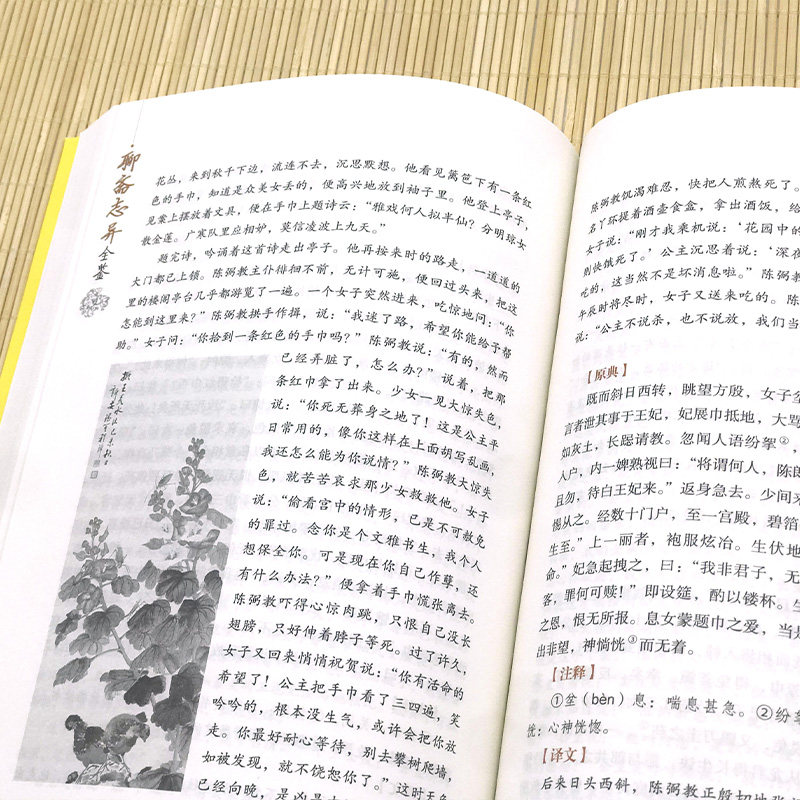 聊斋志异全鉴
花丛，来到秋千下边，流连不去，沉思默想。他看见篱笆下有一条红
色的手巾，知道是众美女丢的，便高兴地放到袖子里。他登上亭子，
见案上摆放着文具，便在手巾上题诗云：“雅戏何人拟半仙？分明琼女
散金莲。广寒队里应相妒，莫信凌波上九天。”
题完诗，吟诵着这首诗走出亭子。他再按来时的路走，一道道的
大门都已上锁。陈弼教主仆徘徊不前，无计可施，便回过头来，把这
里的楼阁亭台几乎都游览了一遍。一个女子突然进来，吃惊地问：“你
怎能到这里来？”陈弼教拱手作揖，说：“我迷了路，希望你能给予帮
助。”女子问：“你拾到一条红色的手巾吗？”陈弼教说：“有的，然而
已经弄脏了，怎么办？”说着，把那
条红巾拿了出来。少女一见大惊失色，
说：“你死无葬身之地了！这是公主平
日常用的，像你这样在上面胡写乱画，
我还怎么能为你说情？”陈弼教大惊失
色，就苦苦哀求那少女救救他。女子
说：“偷看宫中的情形，已是不可赦免
的罪过。念你是个文雅书生，我个人
想保全你。可是现在你自己作孽，还
有什么办法？”便拿着手巾慌张离去。
陈弼教吓得心惊肉跳，只恨自己没长
翅膀，只好伸着脖子等死。过了许久，
女子又回来悄悄祝贺说：“你有活命的
希望了！公主把手巾看了三四遍，笑
吟吟的，根本没生气，或许会把你放
走。你最好耐心等待，别去攀树爬墙，
如被发现，就不饶恕你了。”这时天色
已经向晚，是凶是
陈弼教饥渴难忍，快把人煎熬死了。
名丫环提着酒壶食盒，拿出酒饭，给
女子说：“刚才我乘机说：‘花园中的
则快饿死了。’公主沉思着说：‘深夜
吃的，这当然不是坏消息啦。”陈弼
年辰时将尽时，女子又送来吃的。陈
说：“公主不说杀，也不说放，我们当
【原典】
既而斜日西转，眺望方殷，女子坌
言者泄其事于王妃，妃展巾抵地，大骂
如灰土，长跽请教。忽闻人语纷挐②，
人户，内一婢熟视曰：“将谓何人，陈郎
且勿，待白王妃来。”返身急去。少间来
惕从之。经数十门户，至一宫殿，碧箔
生至。”上一丽者，袍服炫冶。生伏地
命。”妃急起拽之，曰：“我非君子，无
客，罪何可赎！”即设筵，酌以镂杯。生
之恩，恨无所报。息女蒙题巾之爱，当是
出非望，神惝恍③而无着。
【注释】
①坌（bèn）息：喘息甚急。②纷挐
恍：心神恍惚。
【译文】
后来日头西斜，陈弼教正殷切地